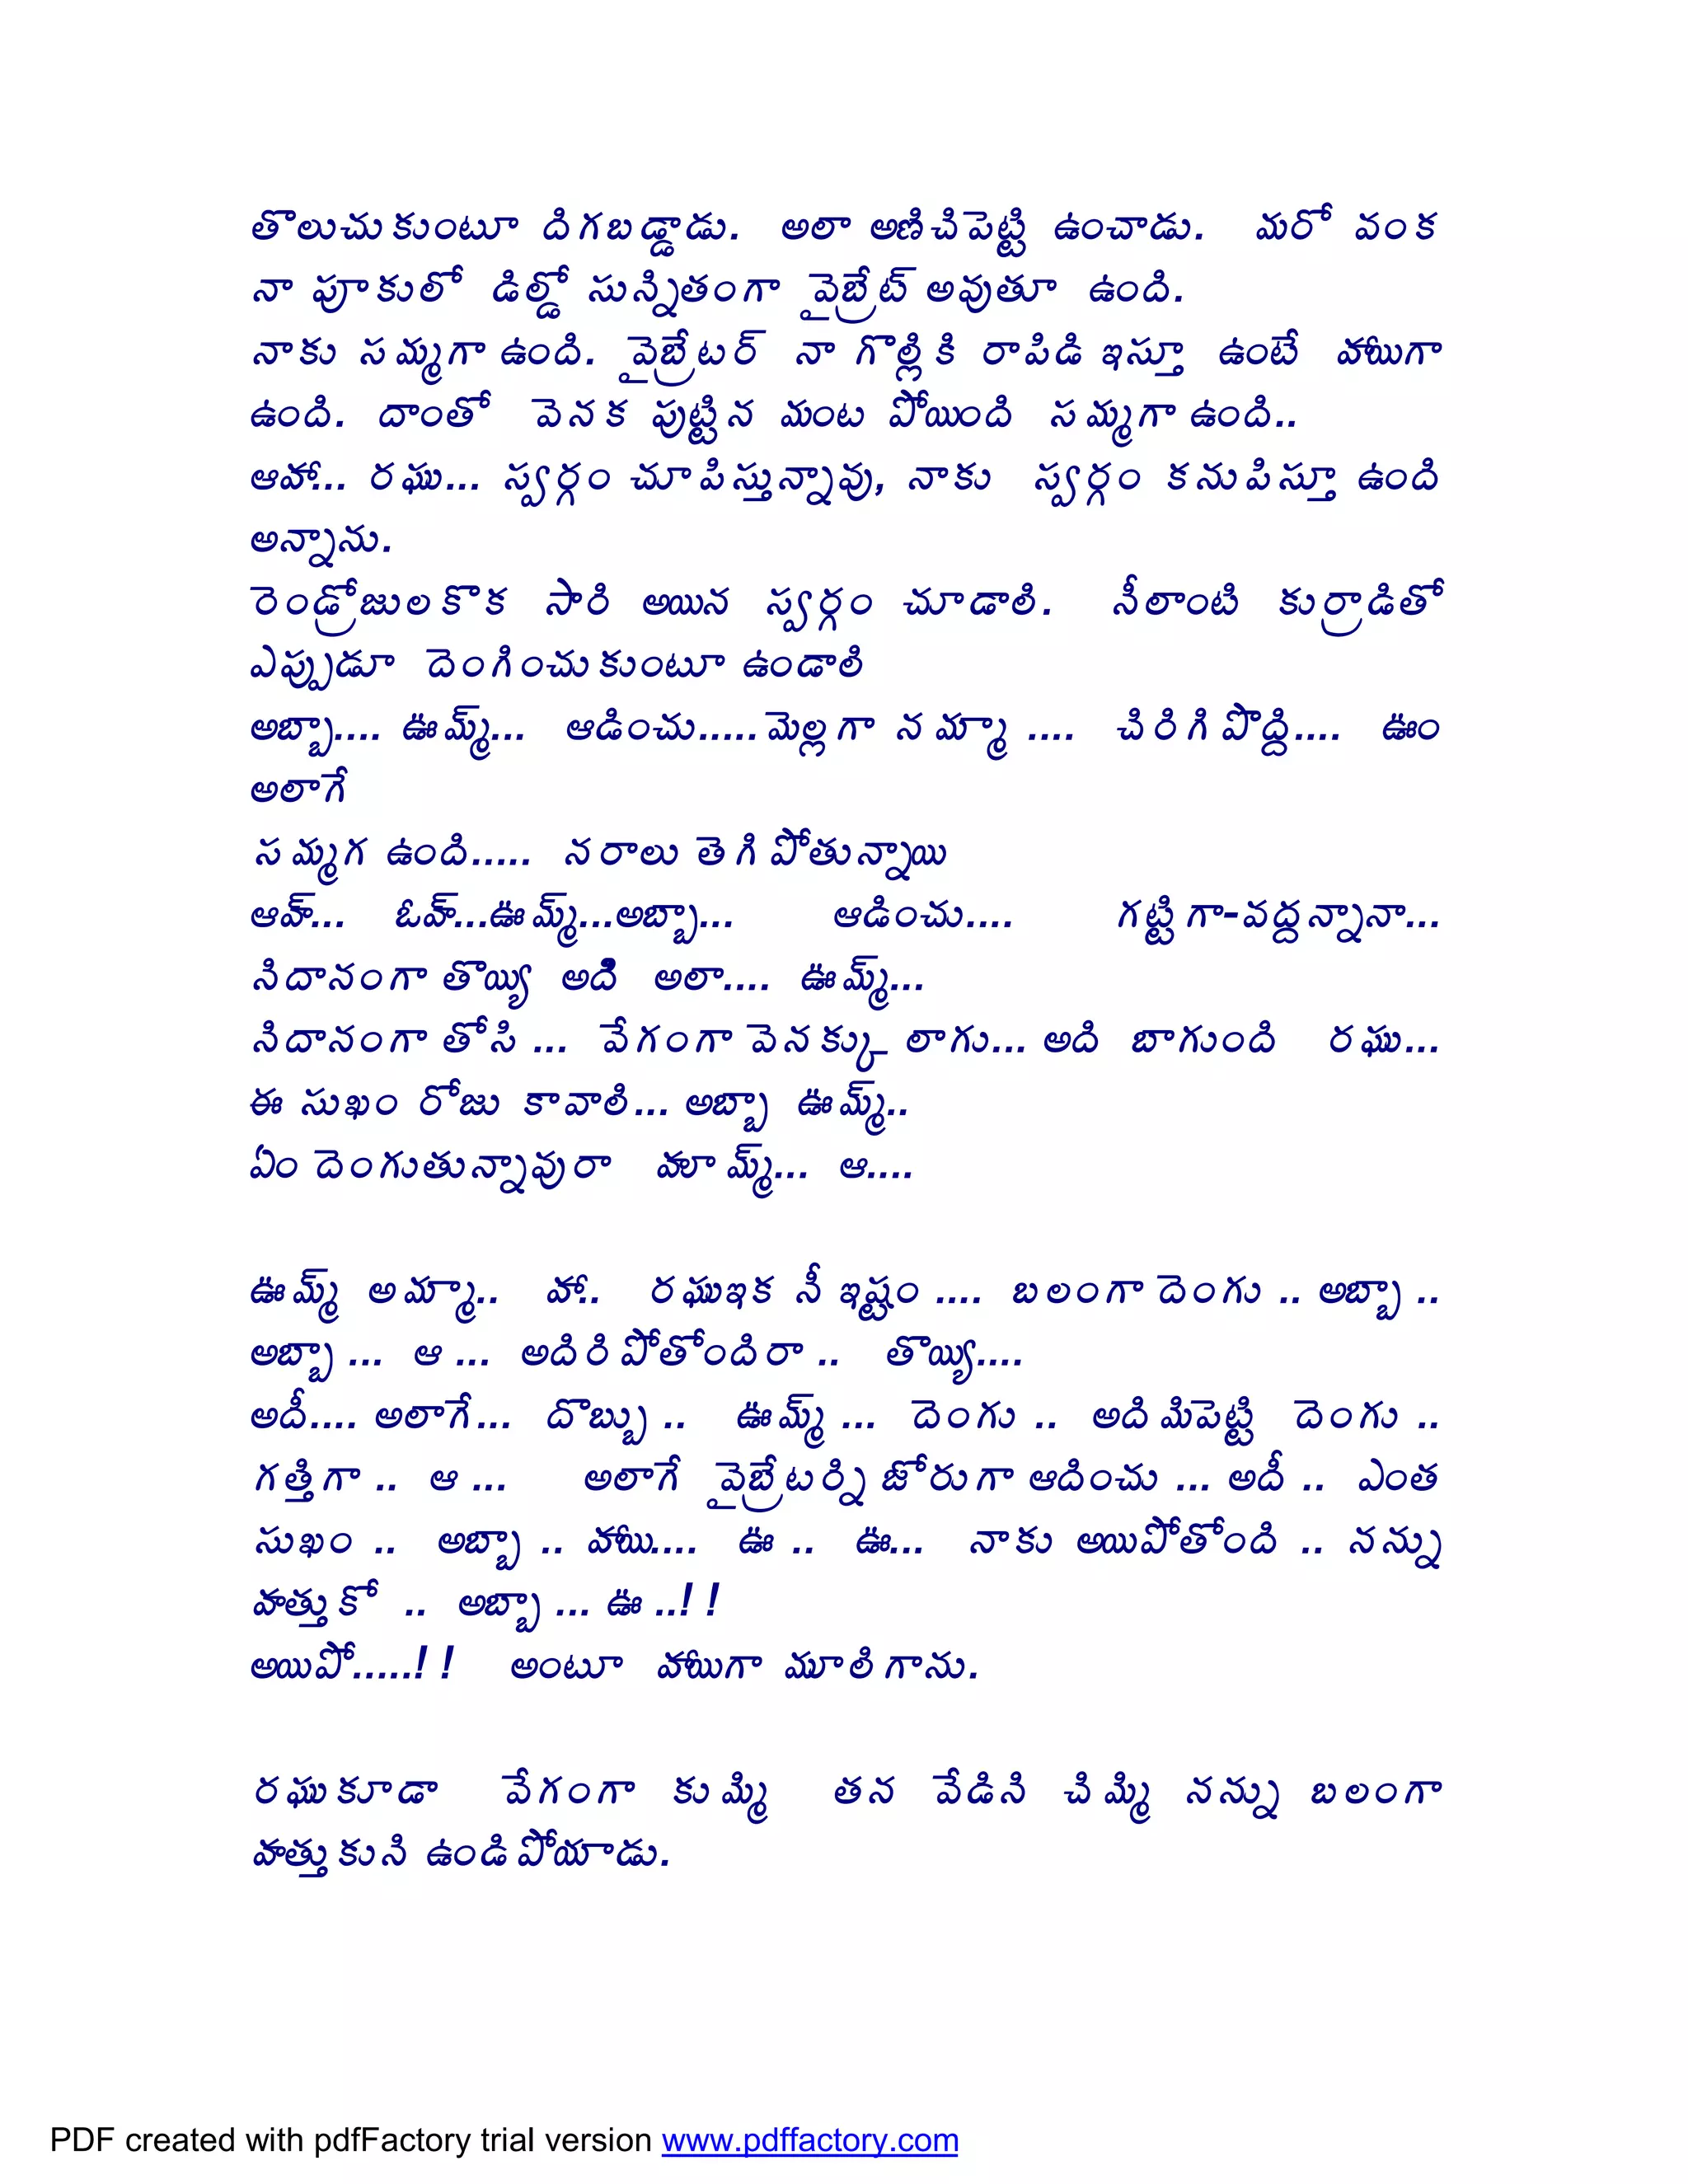 తొలుచుకుంటూ దిగబడ్డాడు. అలా అణిచిపెట్టి ఉంచాడు. మరో వంక
నా పూకులో డిల్డో సున్నితంగా వైబ్రేట్ అవుతూ ఉంది.
నాకు సమ్మగా ఉంది. వైబ్రేటర్ నా గొల్లికి రాపిడి ఇస్తూ ఉంటే హాయిగా
ఉంది. దాంతో వెనక పుట్టిన మంట పోయింది సమ్మగా ఉంది..
ఆహా... రఘు... స్వర్గం చూపిస్తున్నావు, నాకు స్వర్గం కనుపిస్తూ ఉంది
అన్నాను.
రెండ్రోజులకొక సారి అయిన స్వర్గం చూడాలి. నీలాంటి కుర్రాడితో
ఎప్పుడూ దెంగించుకుంటూ ఉండాలి
అబ్బా.... ఊమ్మ్... ఆడించు.....మెల్లగా నమ్మా .... చిరిగిపొద్ది.... ఊం
అలాగే
సమ్మగ ఉంది..... నరాలు తెగిపోతున్నాయి
ఆహ్... ఓహ్...ఊమ్మ్...అబ్బా... ఆడించు.... గట్టిగా-వద్దన్నానా...
నిదానంగా తొయ్యి అదీ అలా.... ఊమ్మ్...
నిదానంగా తోసి ... వేగంగా వెనక్కు లాగు... అది బాగుంది రఘు...
ఈ సుఖం రోజు కావాలి... అబ్బా ఊమ్మ్..
ఏం దెంగుతున్నావురా హూమ్మ్... ఆ....

ఊమ్మ్ అమ్మా.. హా.. రఘుఇక నీ ఇష్టం .... బలంగా దెంగు .. అబ్బా ..
అబ్బా ... ఆ ... అదిరిపోతోందిరా .. తొయ్యి....
అదీ.... అలాగే... దొబ్బు .. ఊమ్మ్ ... దెంగు .. అదిమిపెట్టి దెంగు ..
గత్తిగా .. ఆ ... అలాగే వైబ్రేటర్ని జోరుగా ఆదించు ... అదీ .. ఎంత
సుఖం .. అబ్బా .. హాయి.... ఊ .. ఊ... నాకు అయిపోతోంది .. నన్ను
హత్తుకో .. అబ్బా ... ఊ ..!!
అయిపో.....!! అంటూ హాయిగా మూలిగాను.

రఘుకూడా వేగంగా కుమ్మి తన వేడిని చిమ్మి నన్ను బలంగా
హత్తుకుని ఉండిపోయాడు.

PDF created with pdfFactory trial version www.pdffactory.com